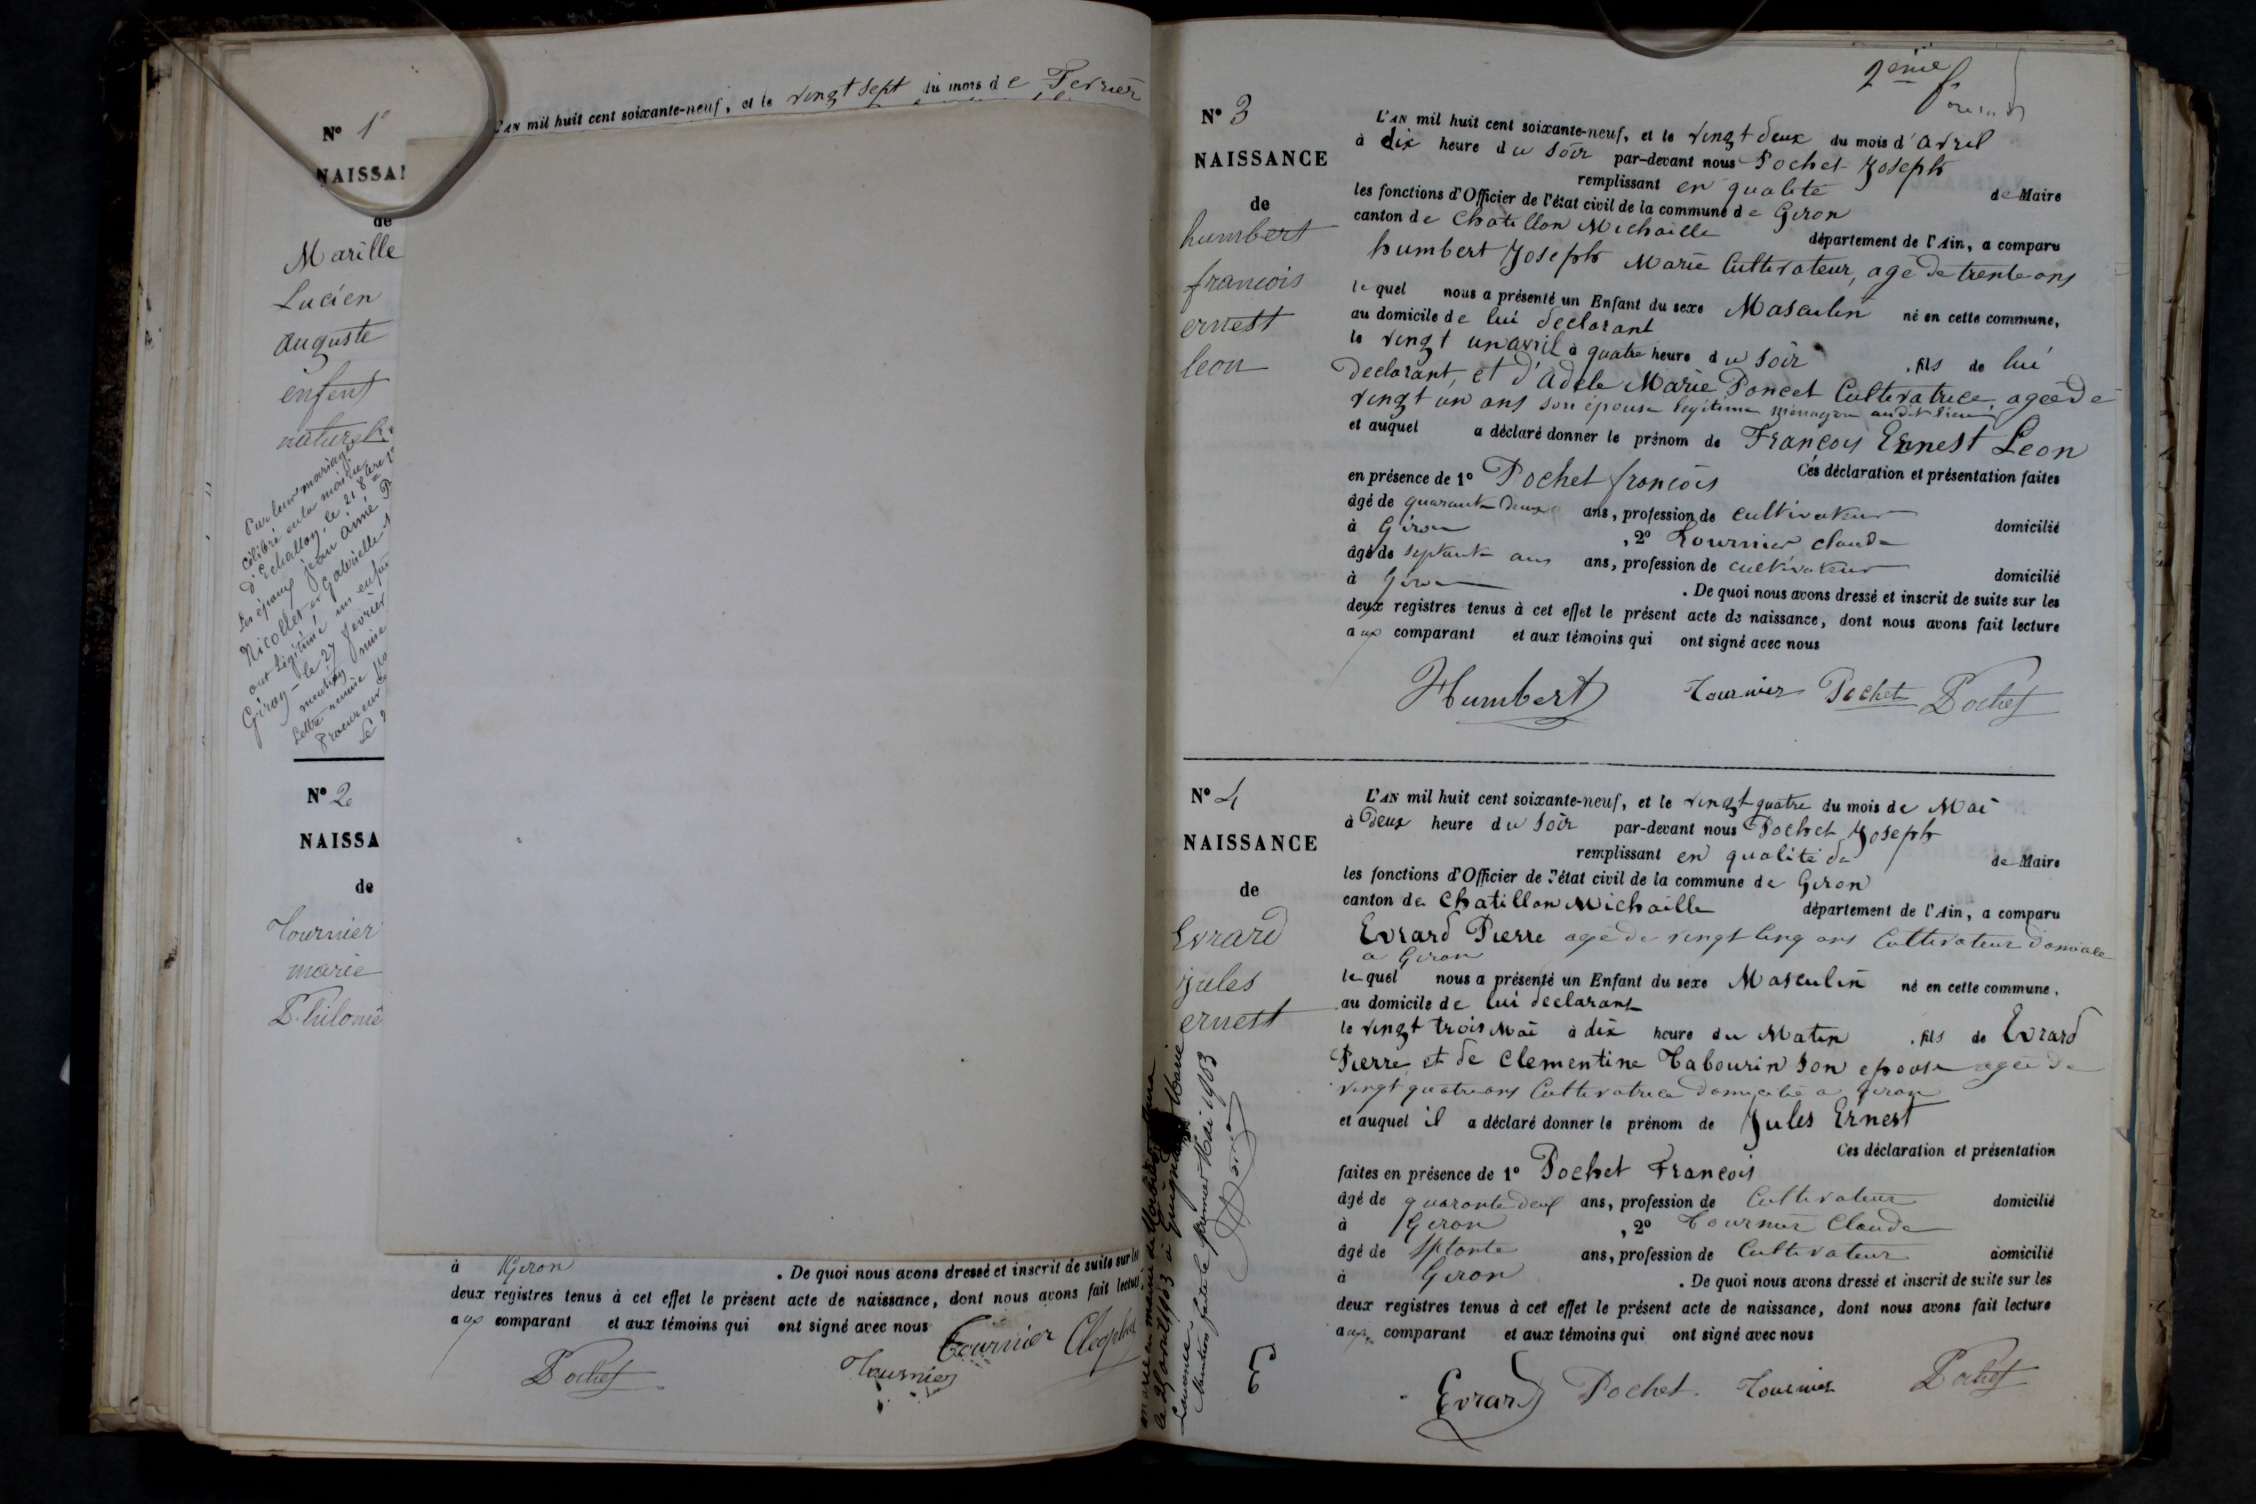 N° 1°
NAISSA
de
Marille
Lucien
auguste
enfent
naturel
Par leur mariage
célébré en la mairie
d'Echallon, le 21 8bre
les époux jean aimé
Nicollet et Gabrielle
ont légitimé un enfan
Giron - le 27 fevrier
mention mise
Lettre remise
Procureur
Le
L'AN mil huit cent soixante-neuf, et le vingt sept du mois de Fevrier
N° 2
NAISSA
de
Tournier
marie
Philomè
à Giron . De quoi nous avons dressé et inscrit de suite sur les
deux registres tenus à cet effet le présent acte de naissance, dont nous avons fait lecture
aux comparant et aux témoins qui ont signé avec nous
Tournier Cleophas
Pochet Tournier
2ème
N° 3
NAISSANCE
de
humbert
francois
ernest
leon
L'AN mil huit cent soixante-neuf, et le vingt deux du mois d'avril
à dix heure du soir par-devant nous Pochet Joseph
remplissant en qualité de Maire
les fonctions d'Officier de l'état civil de la commune de Giron
canton de Chatillon Michaille département de l'Ain, a comparu
humbert Joseph Marie Cultivateur, agé de trente ans
lequel nous a présenté un Enfant du sexe Masculin né en cette commune,
au domicile de lui declarant
le vingt un avril à quatre heure du soir , fils de lui
declarant, et d'adele Marie Poncet Cultivatrice, ageé de
vingt un ans son épouse légitime ménagère audit lieu
et auquel a déclaré donner le prénom de François Ernest Leon
Ces déclaration et présentation faites
en présence de 1° Pochet françois
âgé de quarante deux ans, profession de cultivateur domicilié
à Giron , 2° Tournier claude
âgé de septante ans ans, profession de cultivateur domicilié
à Giron . De quoi nous avons dressé et inscrit de suite sur les
deux registres tenus à cet effet le présent acte de naissance, dont nous avons fait lecture
aux comparant et aux témoins qui ont signé avec nous
Humbert Tournier Pochet Pochet
N° 4
NAISSANCE
de
Evrard
jules
ernest
le 25 avril 1903 à
Mention faite le premier Mai 1903
L'AN mil huit cent soixante-neuf, et le vingt quatre du mois de Mai
à deux heure du soir par-devant nous Pochet Joseph
remplissant en qualité de de Maire
les fonctions d'Officier de l'état civil de la commune de Giron
canton de Chatillon Michaille département de l'Ain, a comparu
Evrard Pierre agé de vingt cinq ans Cultivateur domicile
a Giron
lequel nous a présenté un Enfant du sexe Masculin né en cette commune,
au domicile de lui declarant
le vingt trois Mai à dix heure du Matin , fils de Evrard
Pierre et de Clementine Tabourin son epouse ageé de
vingt quatre ans Cultivatrice domicilié a Giron
et auquel il a déclaré donner le prénom de Jules Ernest
Ces déclaration et présentation
faites en présence de 1° Pochet François
âgé de quarante deux ans, profession de Cultivateur domicilié
à Giron , 2° Tournier Claude
âgé de septante ans, profession de Cultivateur domicilié
à Giron . De quoi nous avons dressé et inscrit de suite sur les
deux registres tenus à cet effet le présent acte de naissance, dont nous avons fait lecture
aux comparant et aux témoins qui ont signé avec nous
Evrard Pochet Tournier Pochet